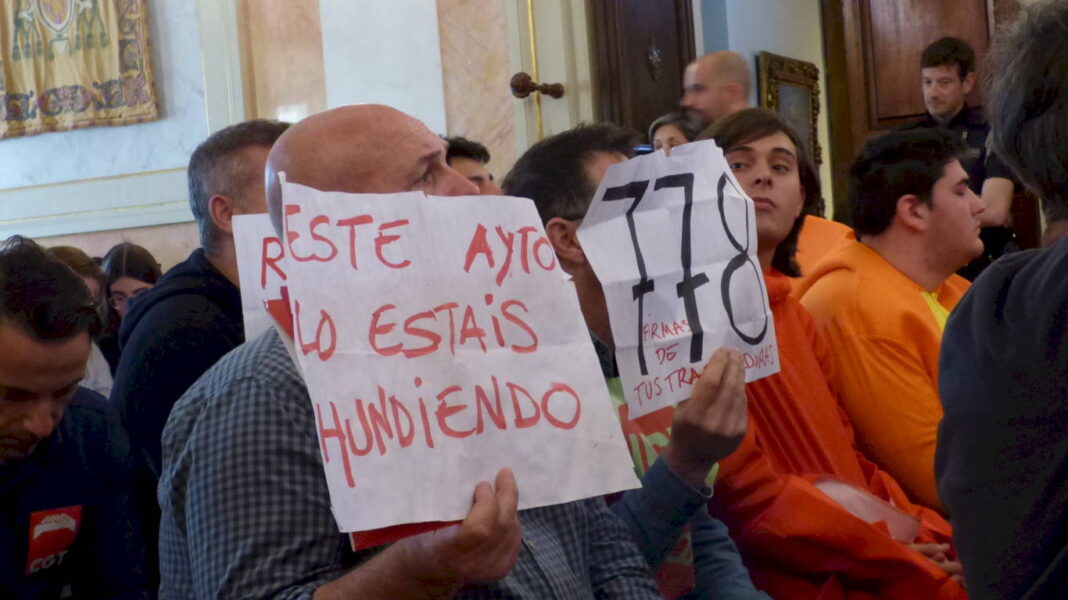 R
ESTE AYTO
LO ESTAIS
HUNDIENDO
778
FIRMAS
DE
TUS
CGT